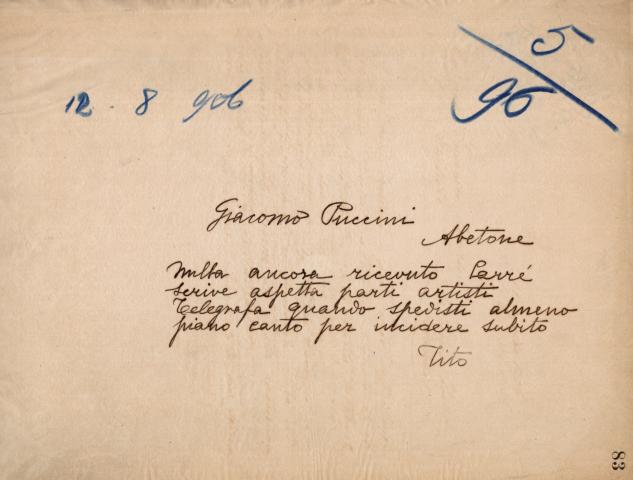 5
96
12 - 8 906
Giacomo Puccini
Abetone
Nulla ancora ricevuto Carré
scrive aspetta parti artisti
Telegrafa quando spedisti almeno
piano canto per incidere subito
Tito
83